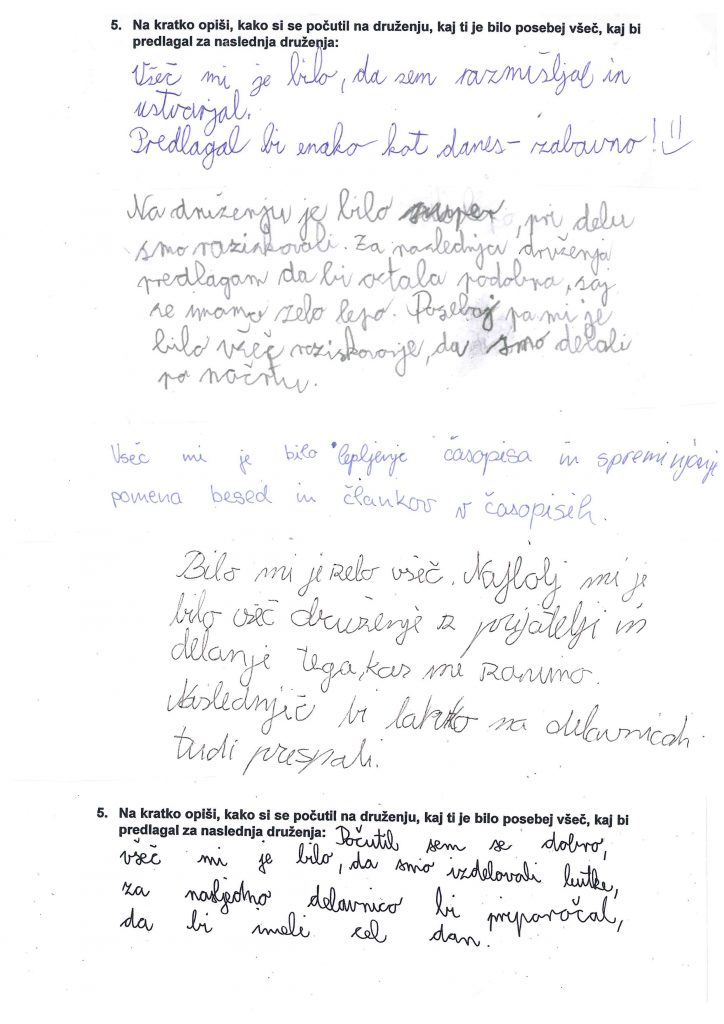 5. Na kratko opiši, kako si se počutil na druženju, kaj ti je bilo posebej všeč, kaj bi
predlagal za naslednja druženja:
Všeč mi je bilo, da sem razmišljal in
ustvarjal.
Predlagal bi enako kot danes - zabavno! :)
Na druženju je bilo super, pri delu
smo raziskovali. Za naslednja druženja
predlagam da bi ostala podobna, saj
se imamo zelo lepo. Posebaj pa mi je
bilo všeč raziskovanje, da smo delali
po načrtu.
Všeč mi je bilo lepljenje časopisa in spreminjanje
pomena besed in člankov v časopisih.
Bilo mi je zelo všeč. Najbolj mi je
bilo všeč druženje z prijatelji in
delanje tega, kar me zanima.
Naslednjič bi lahko na delavnicah
tudi prespali.
5. Na kratko opiši, kako si se počutil na druženju, kaj ti je bilo posebej všeč, kaj bi
predlagal za naslednja druženja: Počutil sem se dobro,
všeč mi je bilo, da smo izdelovali lutke,
za nasljedno delavnico bi priporočal,
da bi imeli cel dan.